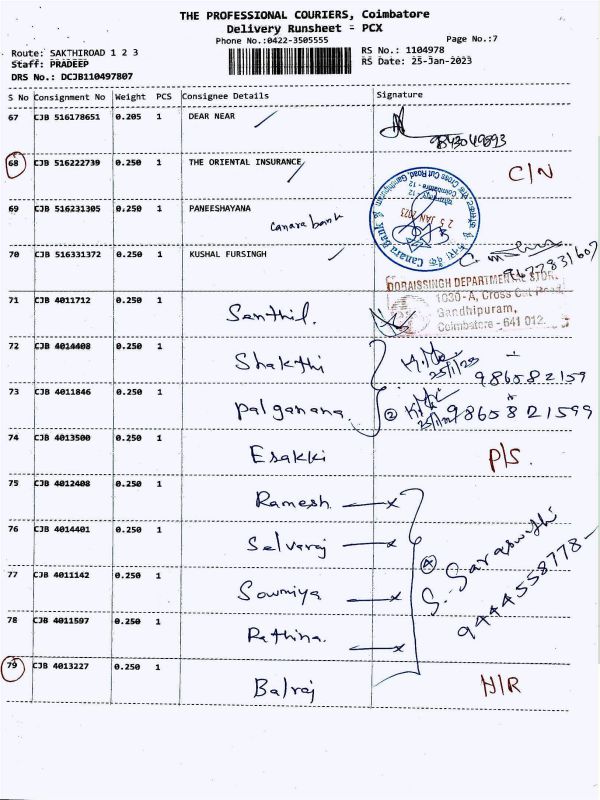 THE PROFESSIONAL COURIERS, Coimbatore
Delivery Runsheet = PCX
Phone No.:0422-3505555 Page No.:7
Route: SAKTHIROAD 1 2 3 RS No.: 1104978
Staff: PRADEEP RS Date: 25-Jan-2023
DRS No.: DCJB110497807
S No Consignment No Weight PCS Consignee Details Signature
67 CJB 516178651 0.205 1 DEAR NEAR
9843049893
68 CJB 516222739 0.250 1 THE ORIENTAL INSURANCE C/N
69 CJB 516231305 0.250 1 PANEESHAYANA
Canara bank
Canara Bank
Cross Cut Road, Gandhipuram
Coimbatore - 12
25 JAN 2023
70 CJB 516331372 0.250 1 KUSHAL FURSINGH
9677831607
DORAISSINGH DEPARTMENTAL STORE
1030-A, Cross Cut Road,
Gandhipuram,
Coimbatore - 641 012.
71 CJB 4011712 0.250 1 Senthil.
72 CJB 4014408 0.250 1 Shakthi 25/1/23 986582159
73 CJB 4011846 0.250 1 Palganana. 9865821599
74 CJB 4013500 0.250 1 Esakki P/S.
75 CJB 4012408 0.250 1 Ramesh
76 CJB 4014401 0.250 1 Selvaraj
77 CJB 4011142 0.250 1 Sowmiya
S. Saraswathi
9444558778
78 CJB 4011597 0.250 1 Rathina.
79 CJB 4013227 0.250 1 Balraj N/R